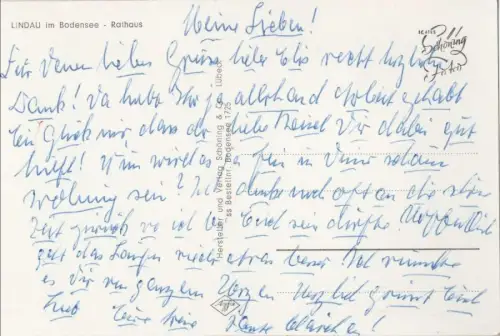 LINDAU im Bodensee - Rathaus
Meine Lieben!
Für Deinen lieben Gruss liebe Elis recht herzlichen
Dank! Da habt Ihr ja allerhand Arbeit gehabt
Ein Glück nur, dass der liebe Dir dabei gut
hilft! Nun wird es ja fein in Deiner
Wohnung sein? Ich denke noch oft an die schöne
Zeit zurück wo ich bei Euch sein durfte. Hoffentlich
geht das Laufen wieder etwas besser. Ich wünsche
es Dir von ganzem Herzen. Herzlich grüsst Euch
Eure
Hersteller und Verlag Schöning & Co., Lübeck
ss Bestellnr. Bodensee 1725
Schöning
Foto